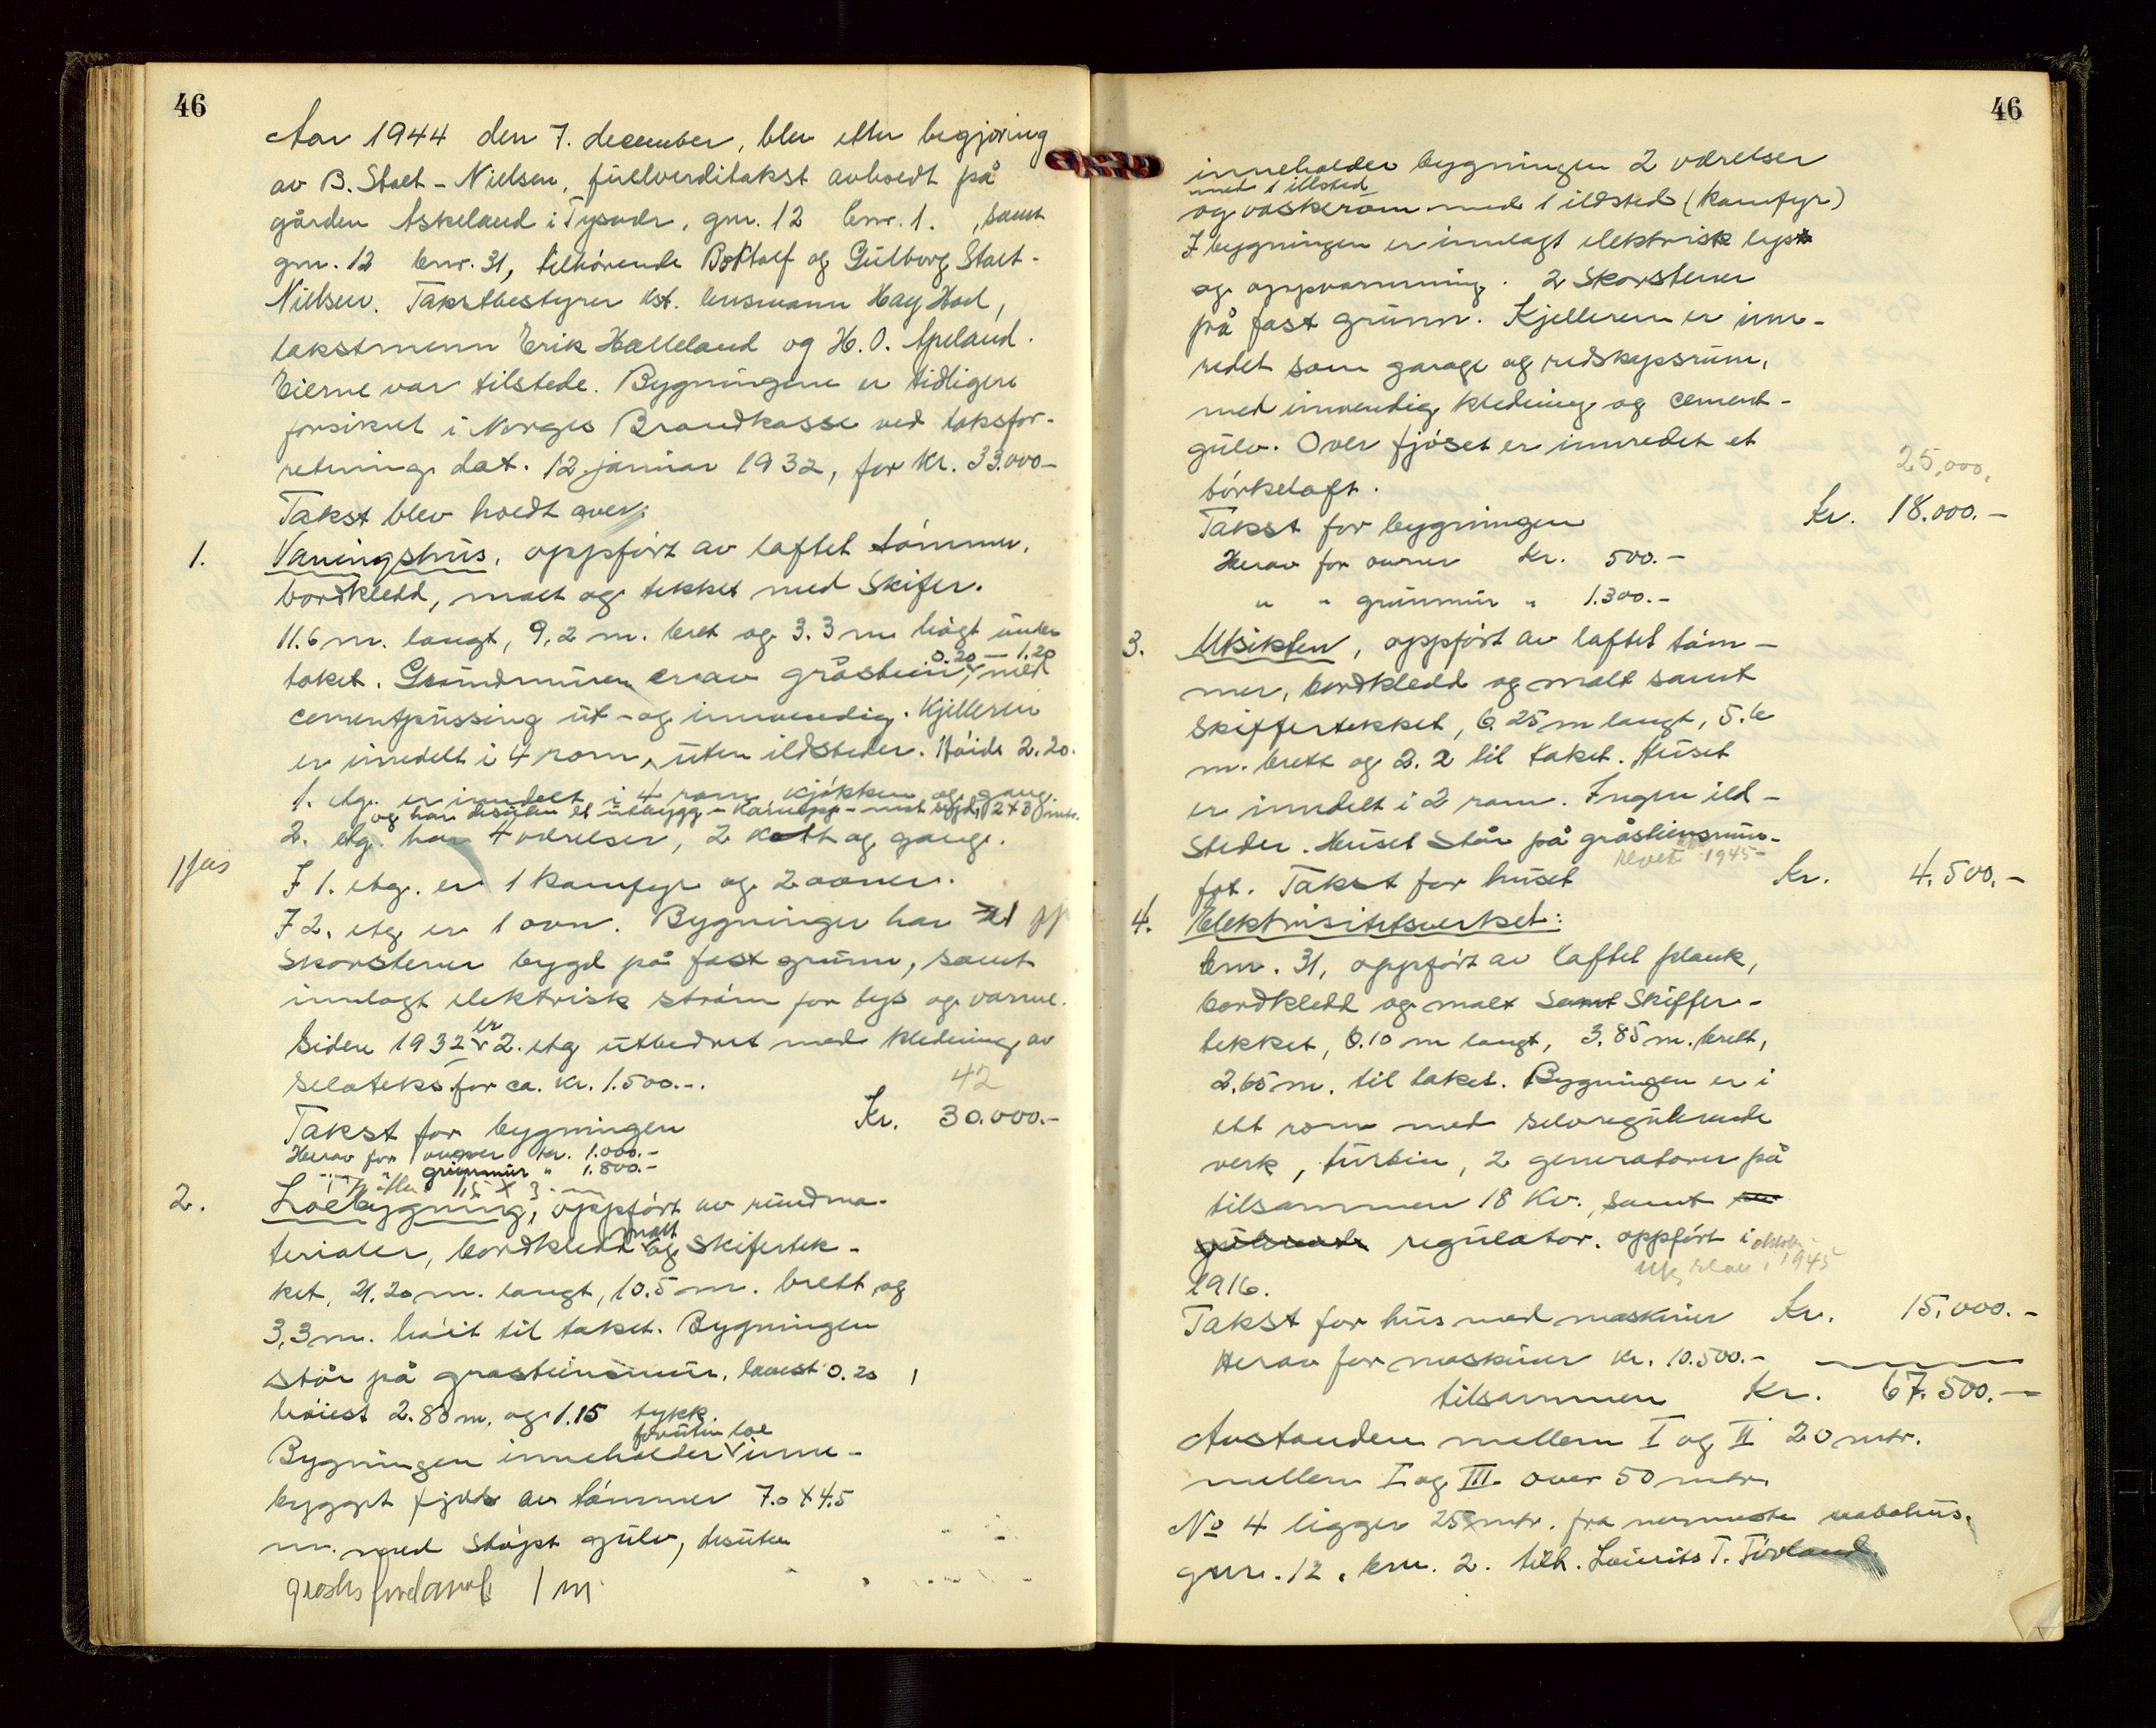 46
Aar 1944 den 7. december, blev etter begjæring
av B. Stolt-Nielsen, fullverditakst avholdt på
gården Askeland i Tysvær, gnr. 12 bnr. 1. , samt
gnr. 12 bnr. 31, tilhörende B og Gulborg Stolt-
Nielsen. Takstbestyrer kst. lensmann Hay Hod,
takstmenn Erik Halleland og H. O. Apeland.
Eierne var tilstede. Bygningene er tidligere
forsikret i Norges Brandkasse ved taksfor-
retning dat. 12 januar 1932, for kr. 33.000-
Takst blev holdt over:
1. Vaningshus, oppfört av laftet tömmer,
bordkledd, malt og tekket med skifer.
11.6 m. langt, 9,2 m. bret og 3.3 m högt under
0.20 - 1.20
taket. Grundmuren er av gråstein, med
cementpussing ut- og innvendig. Kjelleren
er inndelt i 4 rom, uten ildsteder. Höide 2.20.
1. etg. er inndelt i 4 rom kjökken og gang
og har desuten et utbygg - karnapp - mot syd, 2 x 3 mtr.
2. etg. har 4 værelser, 2 kott og gang.
I 1. etg. er 1 komfyr og 2 ovner.
I 2. etg er 1 ovn. Bygningen har 1
skorstener bygd på fast grunn, samt
innlagt elektrisk ström for lys og varme.
Siden 1932 er 2. etg utbedret med kledning av
seloteks for ca. kr. 1.500.-.
42
Takst for bygningen Kr. 30.000.-
Herav for ovner kr. 1.000.-
- " - " grunnmur " 1.800.-
2. Löebygning, oppfört av rundma-
terialer, bordkledd malt og skifertek-
ket, 21.20 m. langt, 10.5 m. brett og
3,3 m. höit til taket. Bygningen
står på grasteinsmur, lavest 0.20,
höiest 2.80 m. og 1.15 tykk.
Bygningen inneholder foruten löe inne-
bygget fjös av tömmer 7.0 x 4.5
m. med stöpt gulv, desuten
1 m
46
inneholder bygningen 2 værelser
med 1 illsted
og vaskerom med 1 ildsted (komfyr)
I bygningen er innlagt elektrisk lys
og oppvarmning. 2 skorstener
på fast grunn. Kjelleren er inn-
redet som garage og redskapsrum,
med innvendig kledning og cement-
gulv. Over fjöset er innredet et
törkeloft.
25,000,
Takst for bygningen Kr. 18.000.-
Herav for ovner kr. 500.-
" " grunnmur " 1.300.-
3. Utsikten, oppfört av laftet töm-
mer, bordkledd og malt samt
skiffertekket, 6.25 m langt, 5.6
m. brett og 2.2 til taket. Huset
er inndelt i 2 rom. Ingen ild-
steder. Huset står på gråsteinsmur-
1945
fot. Takst for huset Kr. 4.500.-
4. Elektrisitetsverket:
bnr. 31, oppfört av laftet plank,
bordkledd og malt samt skiffer-
tekket, 6.10 m langt, 3.85 m. brett,
2.65 m. til taket. Bygningen er i
ett rom med selvregulerende
verk, turbin, 2 generatorer på
tilsammen 18 Kv., samt
regulator. oppfört i
1945
1916.
Takst for hus med maskiner Kr. 15.000.-
Herav for maskiner kr. 10.500.-
tilsammen Kr. 67.500.-
Avstanden mellem I og II 20 mtr.
mellem I og III over 50 mtr.
No 4 ligger 25 mtr. fra nermeste nabohus.
gnr. 12, bnr. 2. tilh. Laurits T. Förland